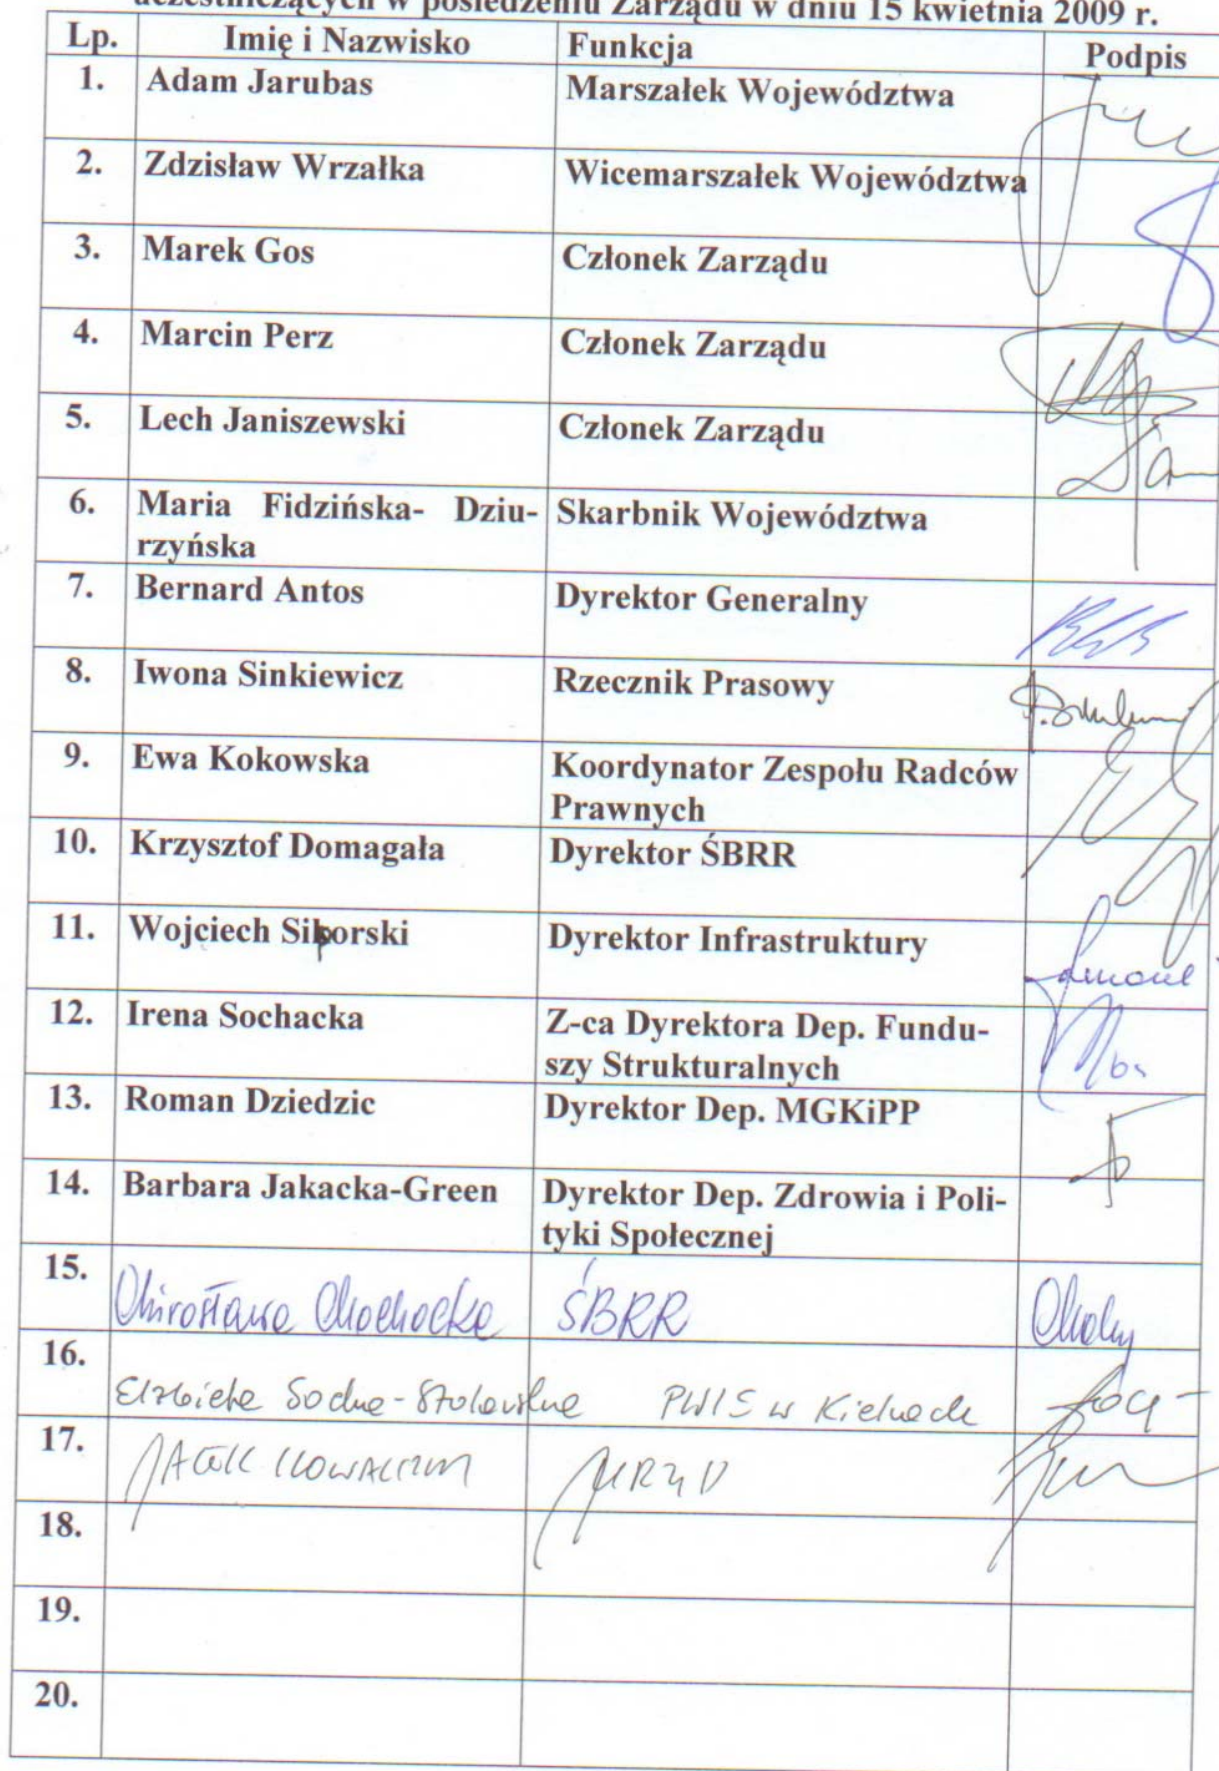 uczestniczących w posiedzeniu Zarządu w dniu 15 kwietnia 2009 r.
Lp. Imię i Nazwisko Funkcja Podpis
1. Adam Jarubas Marszałek Województwa
2. Zdzisław Wrzałka Wicemarszałek Województwa
3. Marek Gos Członek Zarządu
4. Marcin Perz Członek Zarządu
5. Lech Janiszewski Członek Zarządu
6. Maria Fidzińska- Dziu- Skarbnik Województwa
rzyńska
7. Bernard Antos Dyrektor Generalny
8. Iwona Sinkiewicz Rzecznik Prasowy
9. Ewa Kokowska Koordynator Zespołu Radców
Prawnych
10. Krzysztof Domagała Dyrektor ŚBRR
11. Wojciech Siporski Dyrektor Infrastruktury
12. Irena Sochacka Z-ca Dyrektora Dep. Fundu-
szy Strukturalnych
13. Roman Dziedzic Dyrektor Dep. MGKiPP
14. Barbara Jakacka-Green Dyrektor Dep. Zdrowia i Poli-
tyki Społecznej
15. Mirosława ŚBRR
16. Elżbieta Socha-Stolarska PWIS w Kielcach
17. Jacek Kowalczyk
18.
19.
20.